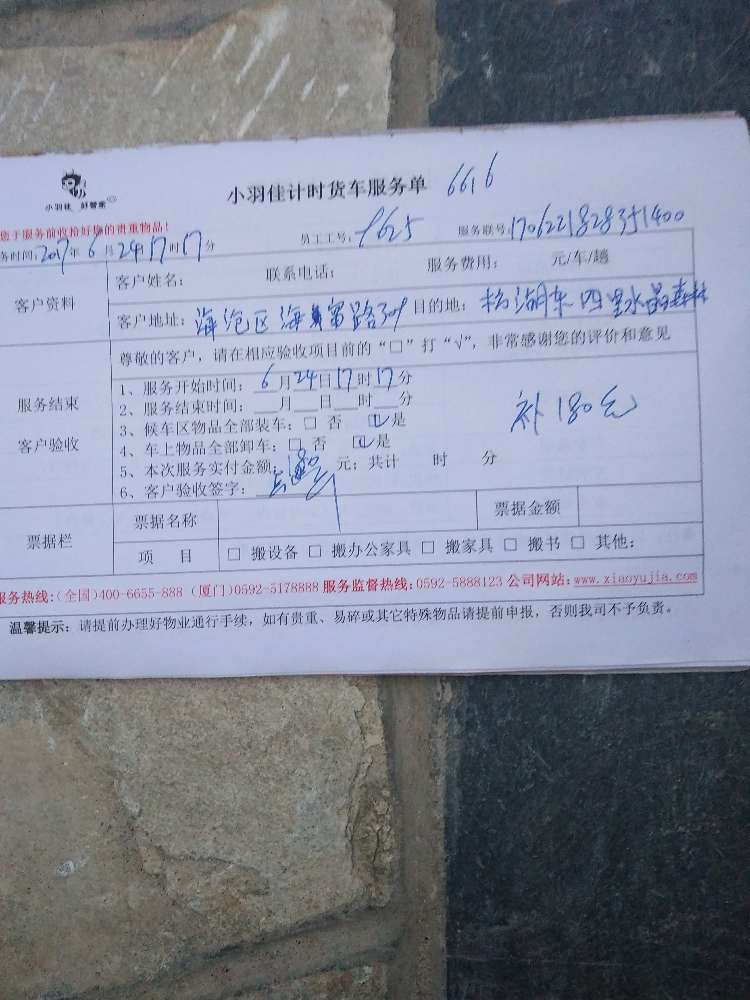 小羽佳 好管家
小羽佳计时货车服务单 6616
您于服务前收拾好您的贵重物品!
务时间:2017年6月24日17时17分 员工工号:9625 服务联号:1706221828351400
客户资料
客户姓名: 联系电话: 服务费用: 元/车/趟
客户地址:海沧区海 富路309 目的地: 湖东四里水晶森林
服务结束
客户验收
尊敬的客户,请在相应验收项目前的“□”打“√”,非常感谢您的评价和意见
1、服务开始时间:6月24日17时17分
2、服务结束时间:___月___日___时___分
3、候车区物品全部装车:□ 否 ☑是
4、车上物品全部卸车:□ 否 ☑是
补180元
5、本次服务实付金额: 元;共计 时 分
6、客户验收签字:
票据栏
票据名称 票据金额
项 目 □ 搬设备 □ 搬办公家具 □ 搬家具 □ 搬书 □ 其他:
服务热线:(全国)400-6655-888 (厦门)0592-5178888 服务监督热线:0592-5888123 公司网站:www.xiaoyujia.com
温馨提示:请提前办理好物业通行手续,如有贵重、易碎或其它特殊物品请提前申报,否则我司不予负责。